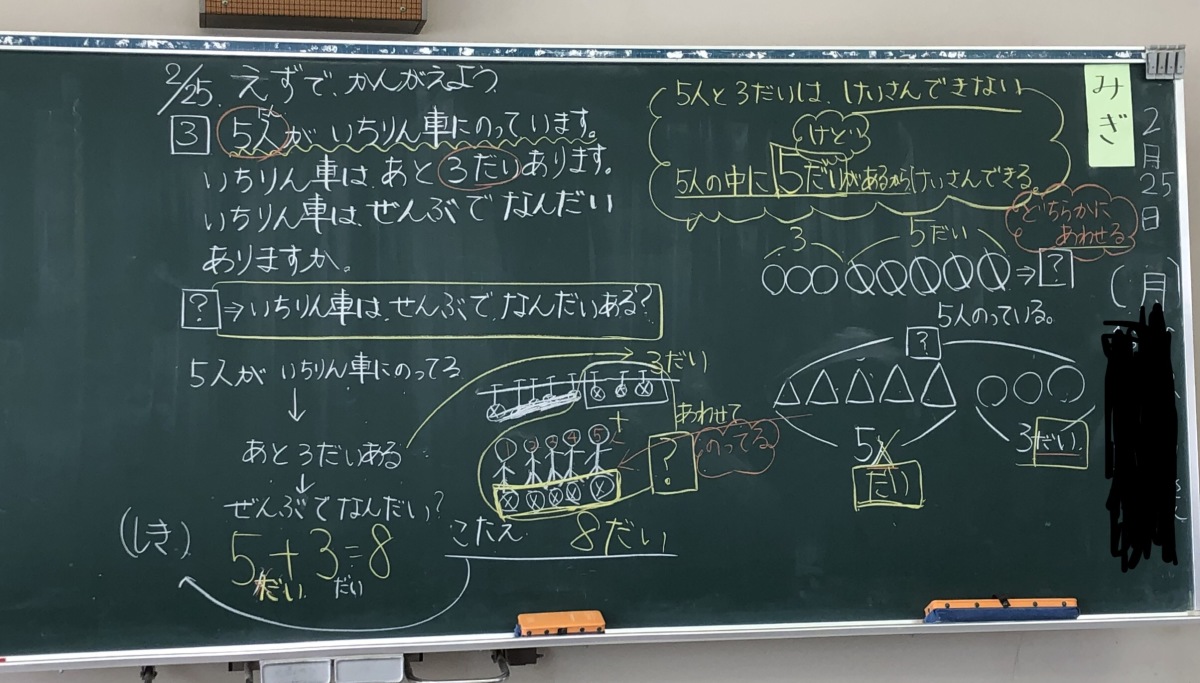 2/25. えずで、かんがえよう
3 5人がいちりん車にのっています。
いちりん車は、あと3だいあります。
いちりん車は、ぜんぶでなんだい
ありますか。
? ⇒いちりん車は、ぜんぶで、なんだいある?
5人が いちりん車にのってる
↓
あと3だいある
↓
ぜんぶでなんだい?
(しき)
5+3=8
だい だい
こたえ 8だい
3だい
+
1 2 3 4 5
あわせて
?
のってる
5人と3だいは、けいさんできない
けど、
5人の中に5だいがあるから、けいさんできる。
どちらかに
あわせる
3 5だい
⇒ ?
5人のっている。
?
5人
だい
3だい
みぎ
2
月
25
日
(月